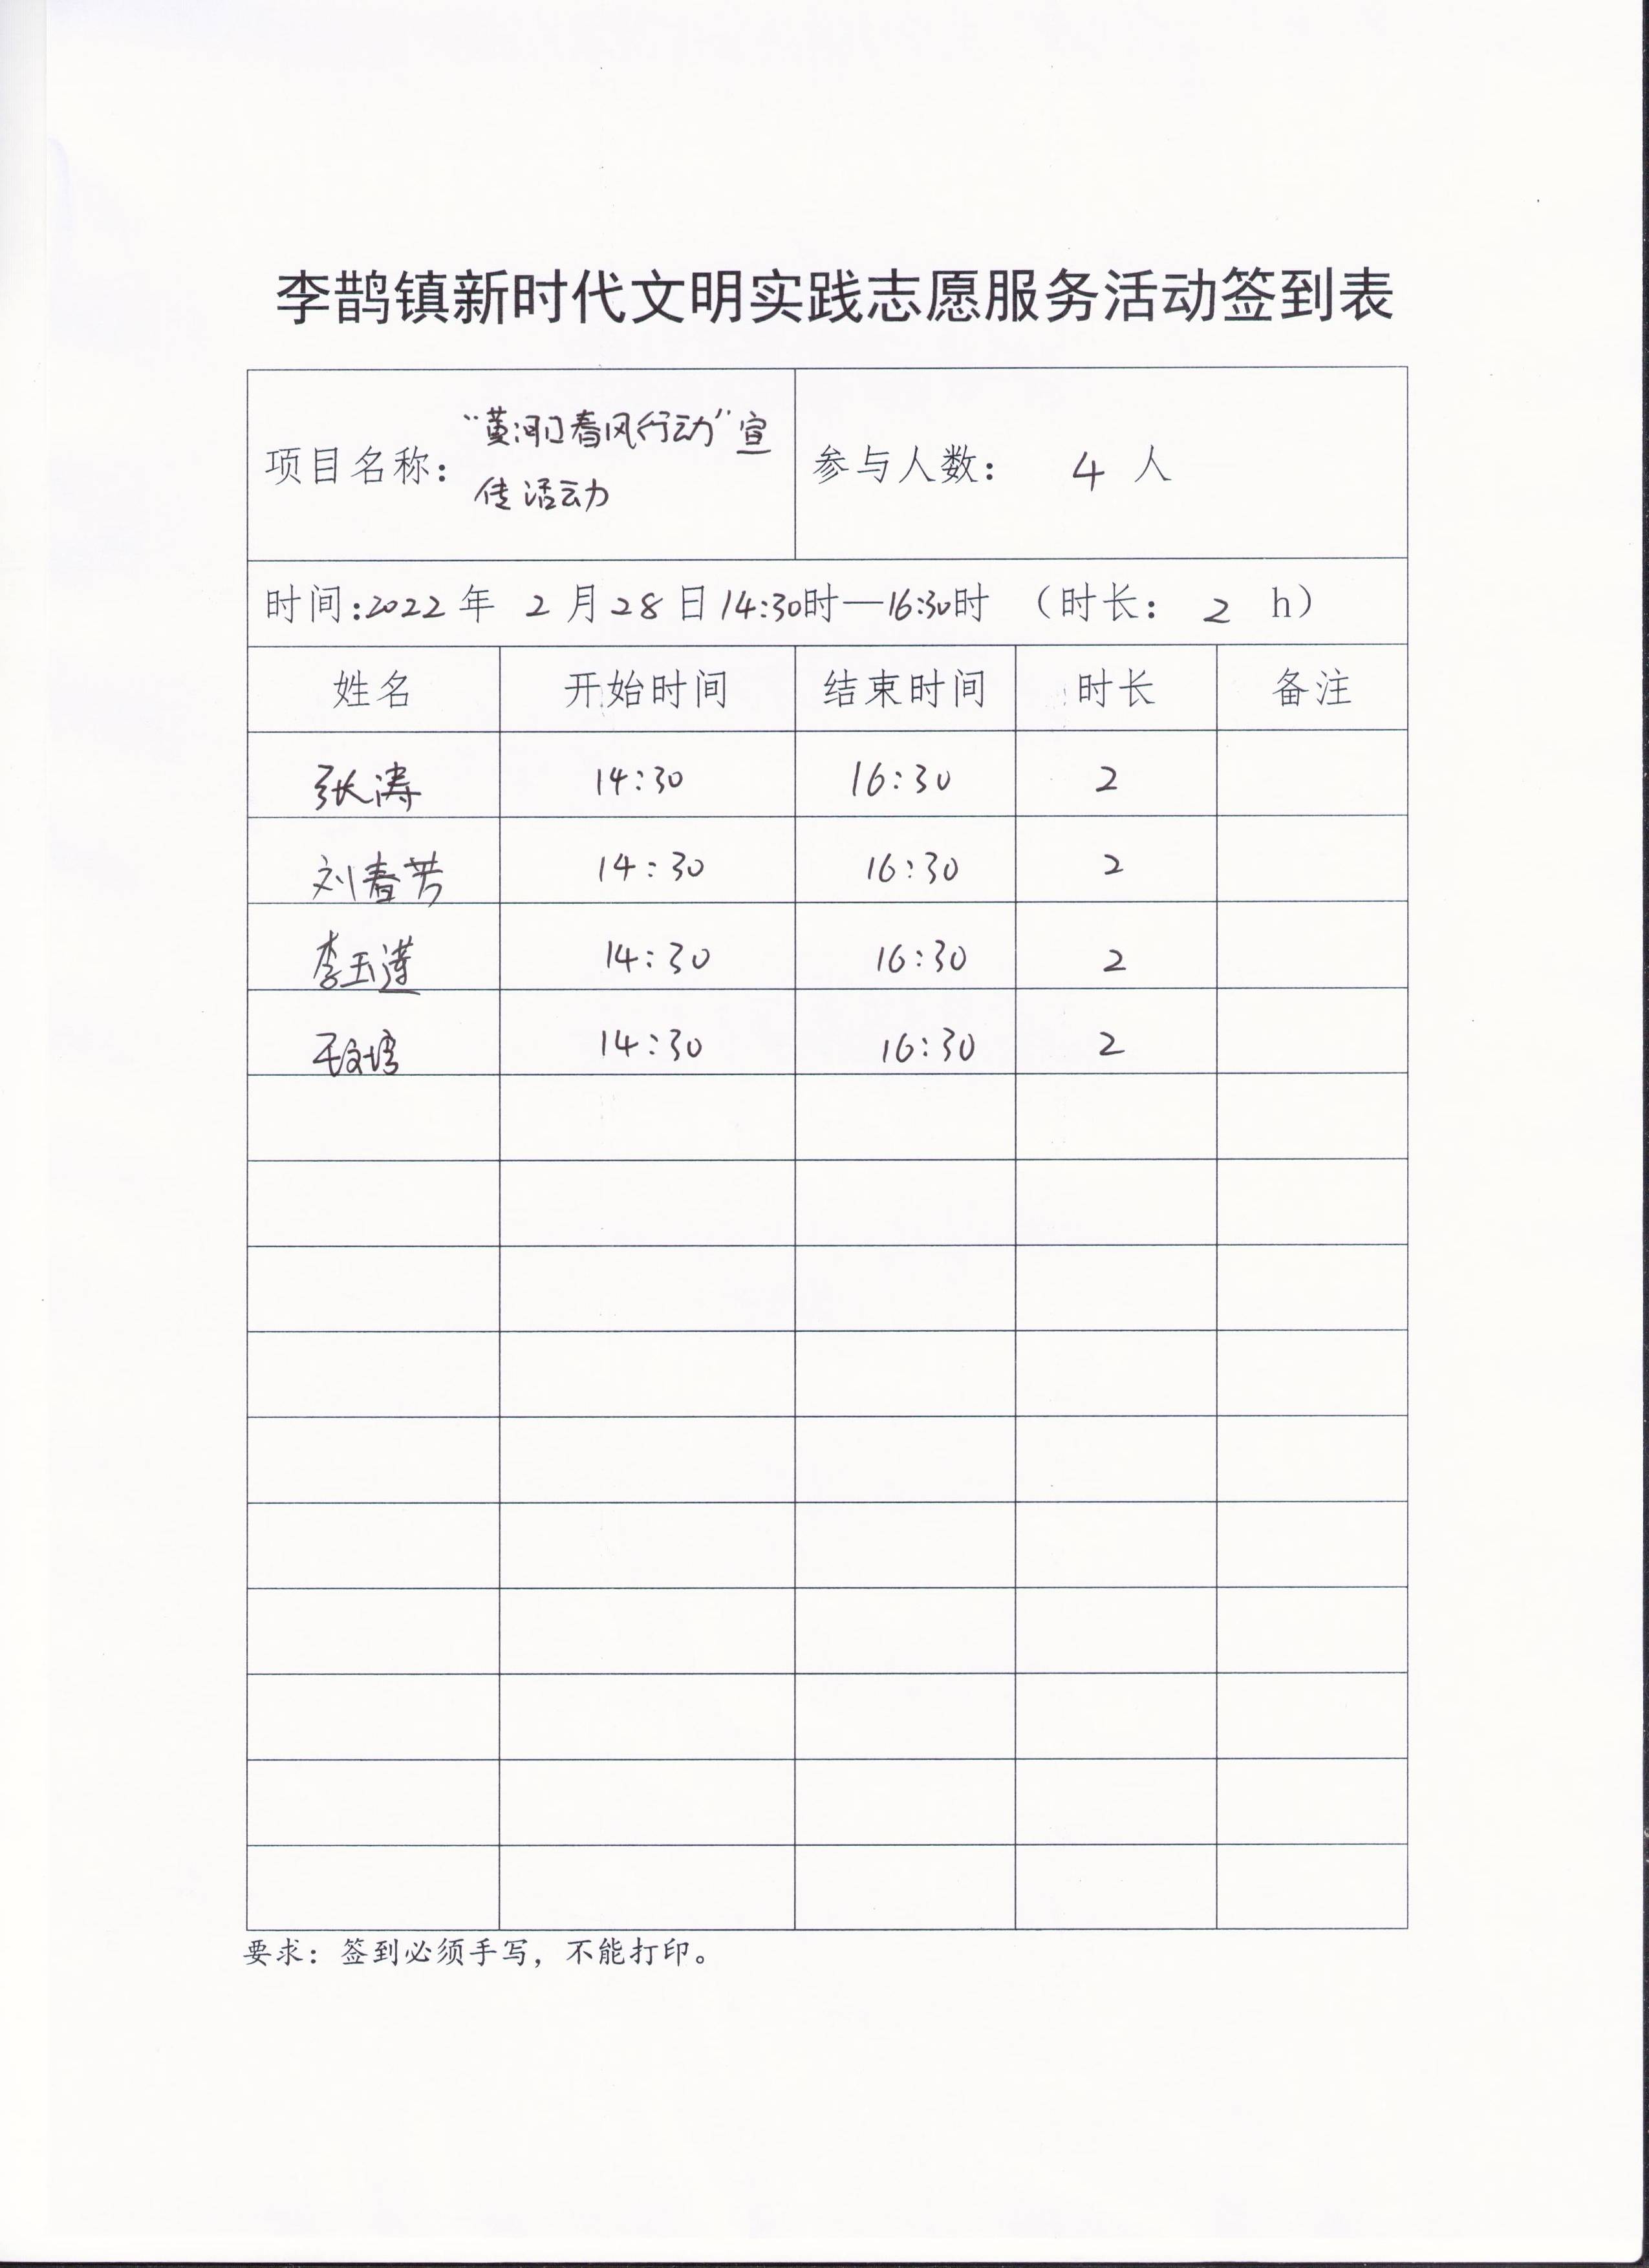 李鹊镇新时代文明实践志愿服务活动签到表
项目名称：“黄河口春风行动”宣
传活动
参与人数： 4 人
时间:2022 年 2 月 28 日 14:30时—16:30时 （时长： 2 h）
姓名 开始时间 结束时间 时长 备注
张涛 14:30 16:30 2
刘春芳 14:30 16:30 2
李玉莲 14:30 16:30 2
14:30 16:30 2
要求：签到必须手写，不能打印。